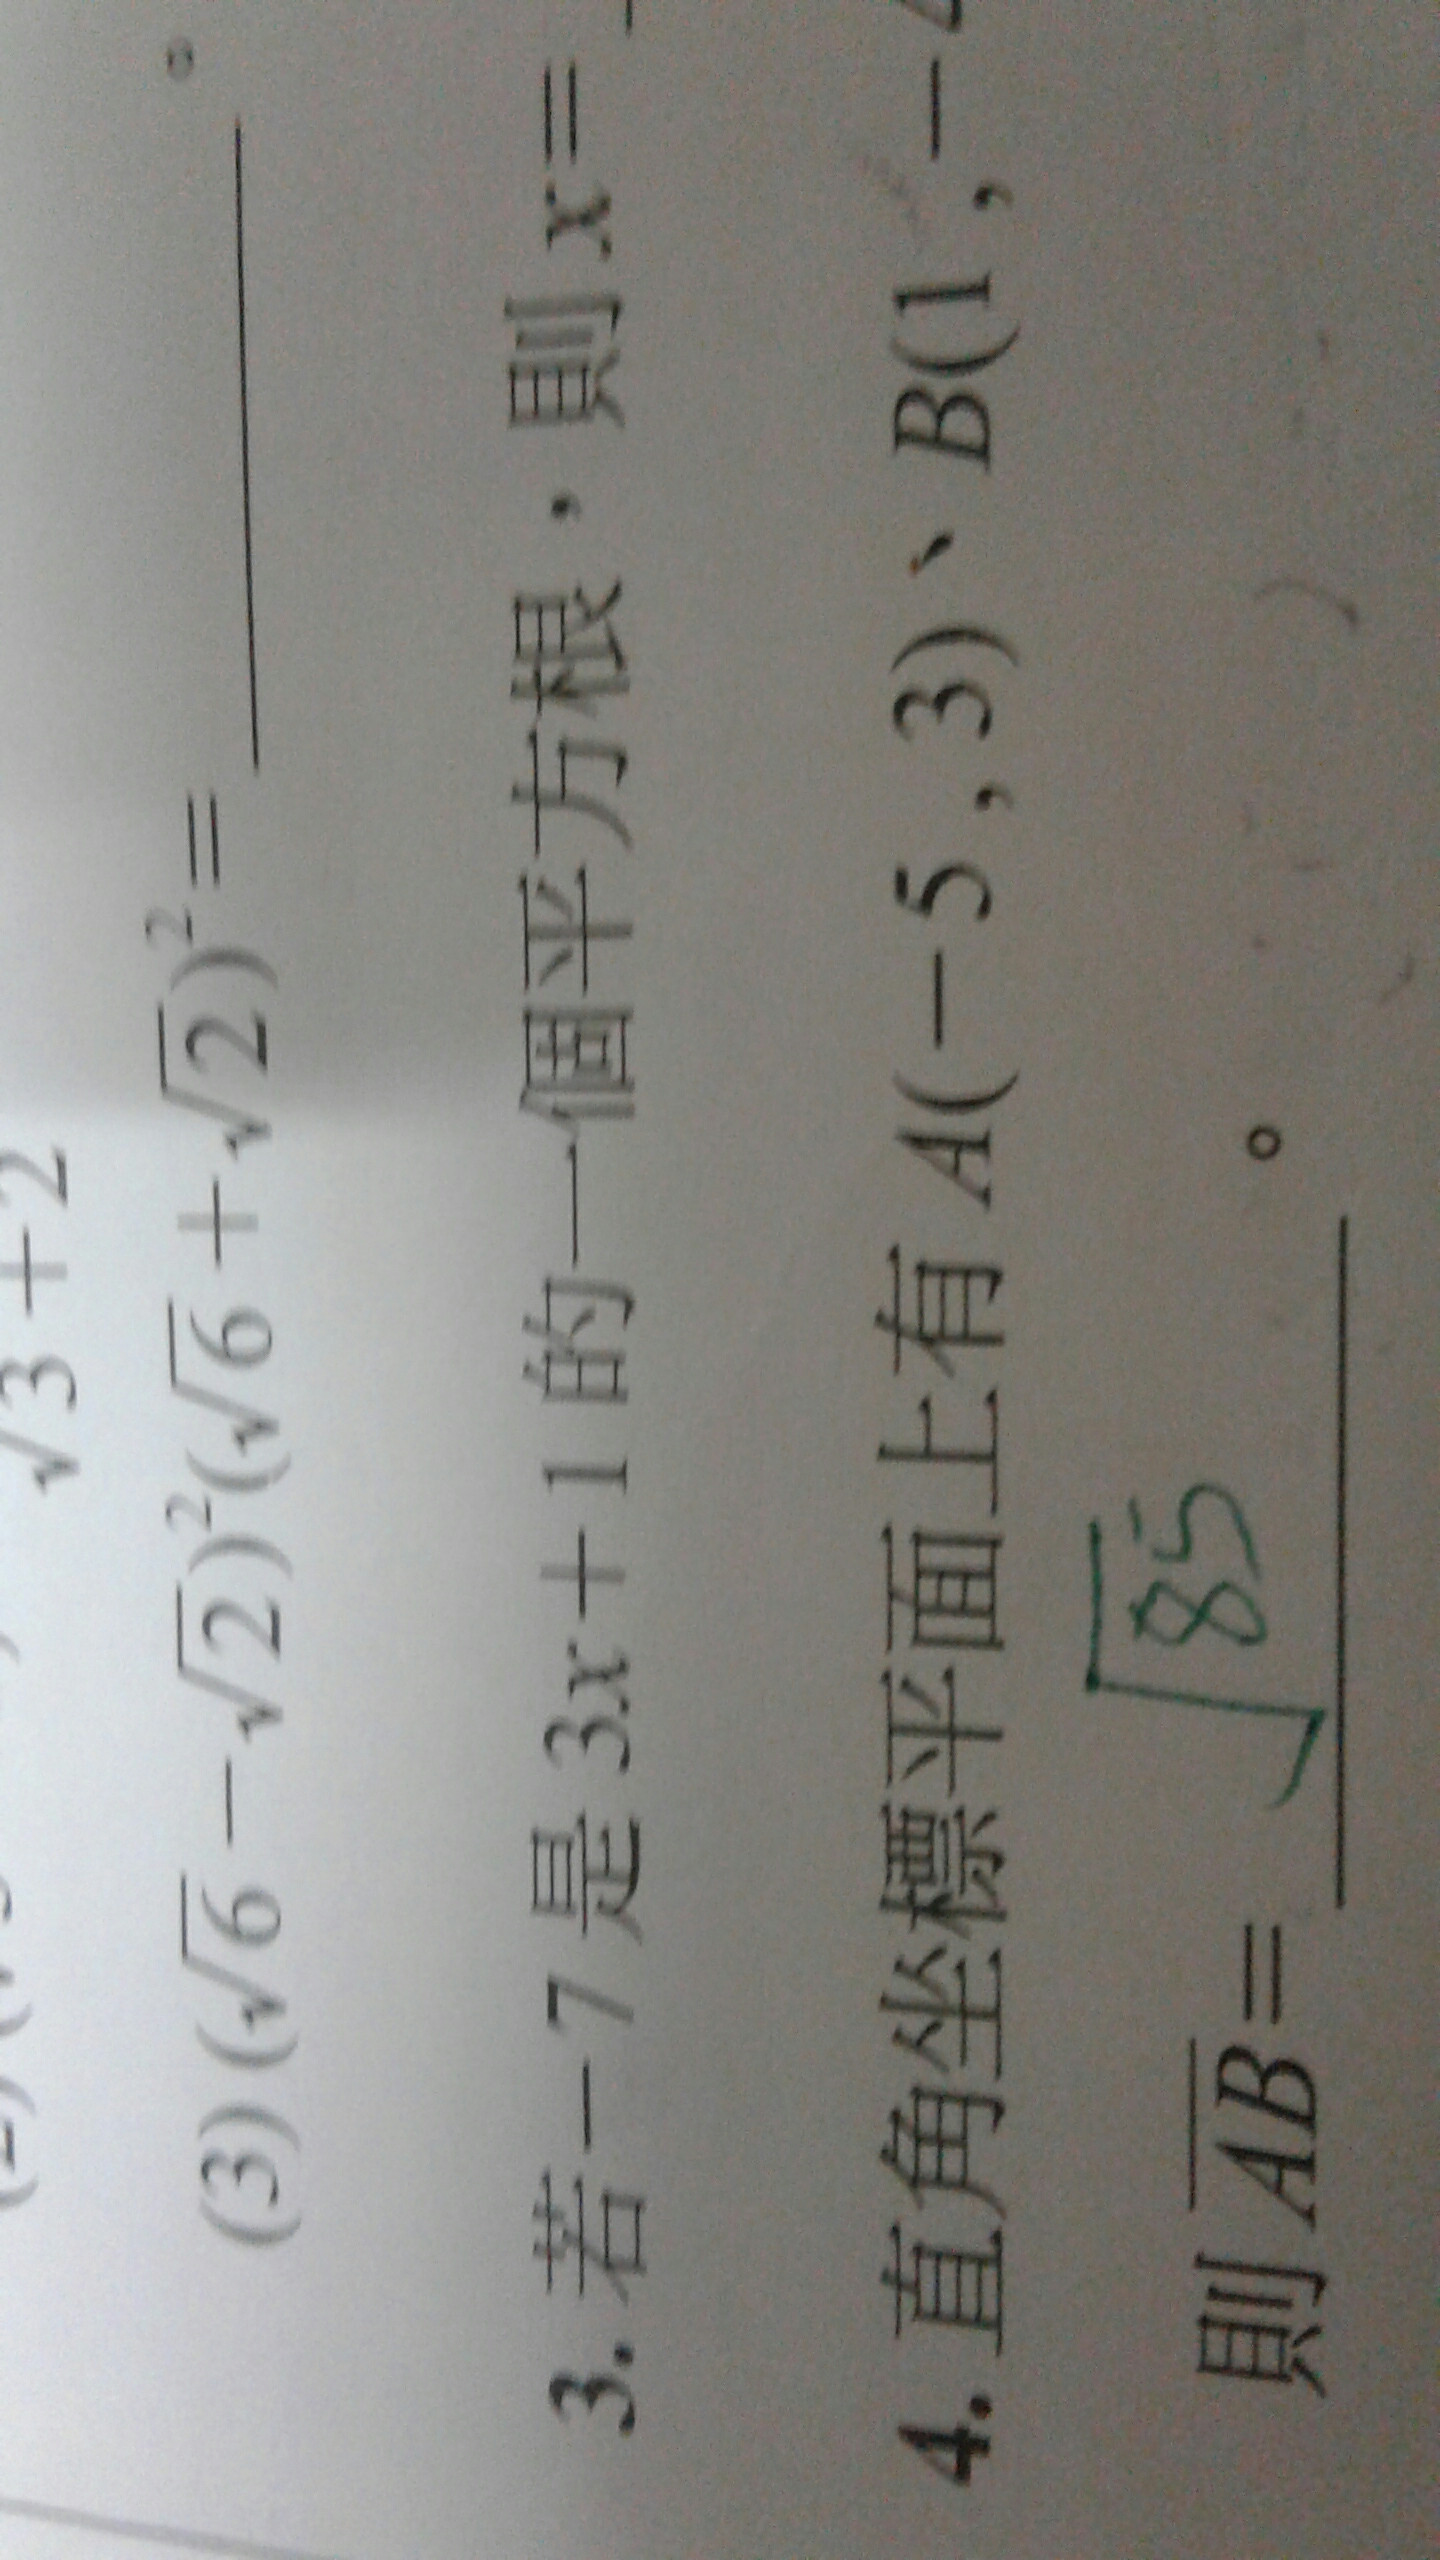 √3+2
(3) (√6−√2)²(√6+√2)²=________。
3. 若−7是3x+1的一個平方根，則x=
4. 直角坐標平面上有A(−5,3)、B(1,−4
則AB=√85。